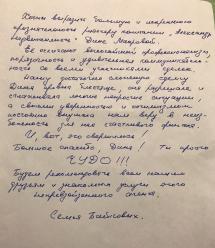 Хотим выразить большую и искреннюю
признательность риелтору компании, Александр
Недвижимость - Дине Макаровой.
Её отличают высочайший профессионализм,
порядочность и удивительная коммуникабель-
ность со всеми участниками сделок.
Нашу достаточно сложную сделку
Дина провела блестяще, она разрешала и
сглаживала многие непростые ситуации,
а своими уверенностью и оптимизмом
постоянно внушала нам веру в неиз-
бежность для нас счастливого финала.
И, вот, это свершилось!
Большое спасибо, Дина! Ты просто
ЧУДО!!!
Будем рекомендовать всем нашим
друзьям и знакомым услуги этого
непревзойденного агента.
Семья